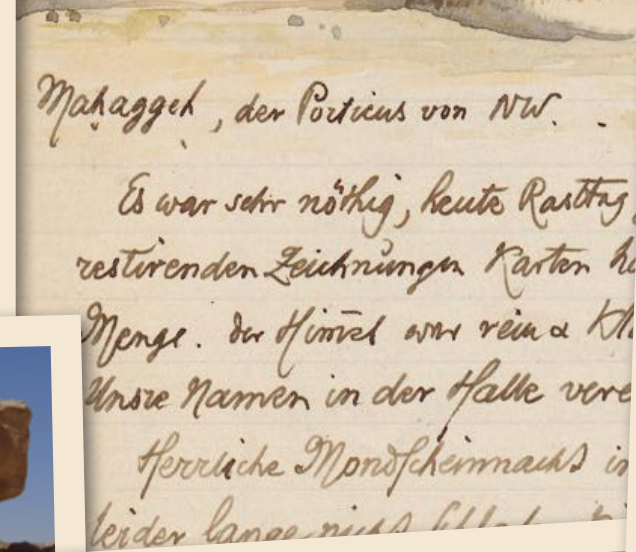 Maḥaggeh, der Porticus von NW.
Es war sehr nöthig, heute Rasttag
restirenden Zeichnungen Karten
Menge. der Him̅el war rein &
Unsre Namen in der Halle vere
Herrliche Mondscheinnacht in
leider lange nicht